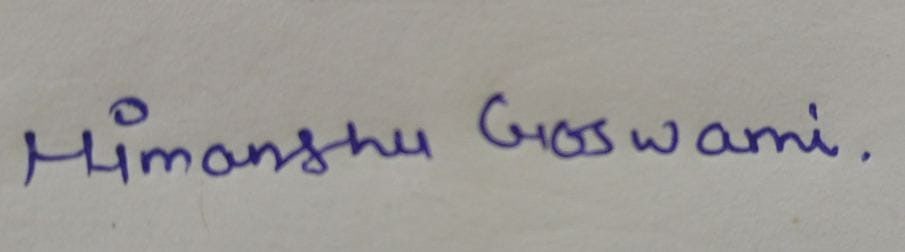 Himanshu Goswami.